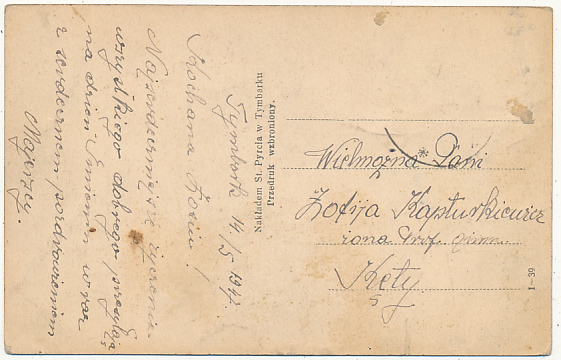 Tymbark 14/5 1941.
Kochana Zosiu!
Najserdeczniejsze życzenia
wszystkiego dobrego przesyłają
na dzień Imienin wraz
z serdecznem pozdrowieniem
Nakładem St. Pyrcla w Tymbarku
Przedruk wzbroniony.
Wielmożna Pani
Zofija Kapturkiewicz
żona Prof. gimn.
Kęty
1—39